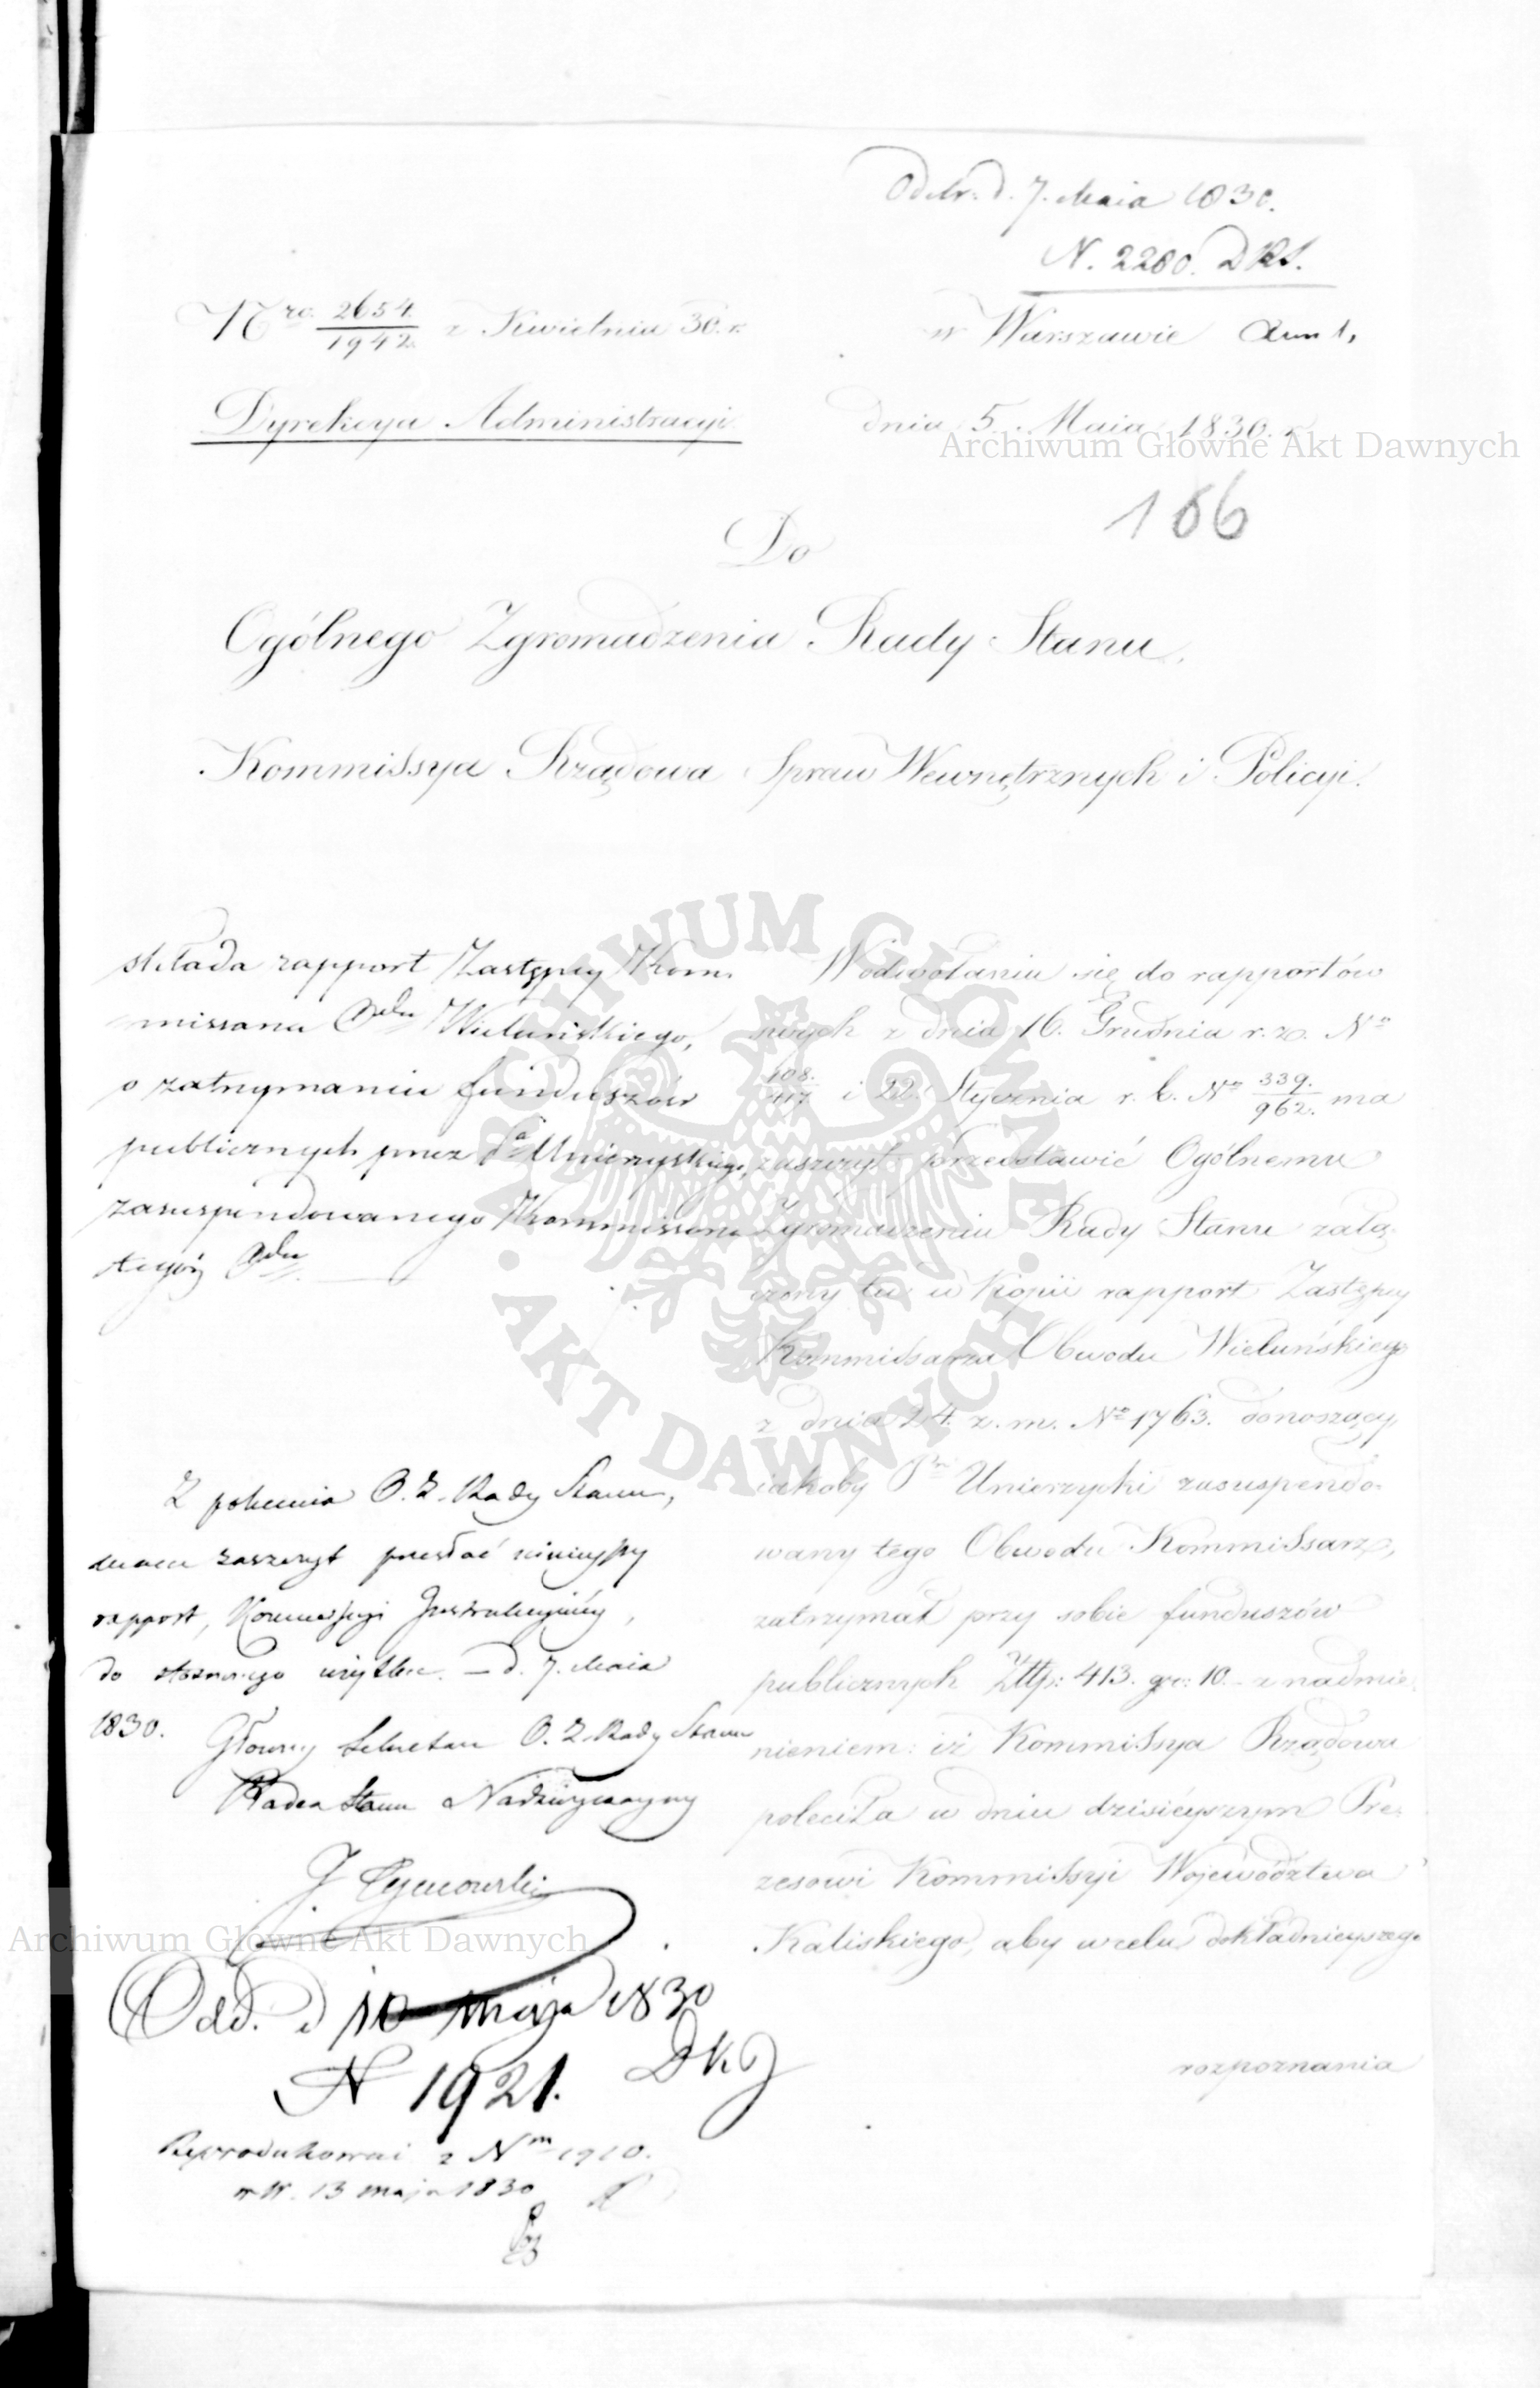 Odebr. d. 7. Maia 1830.
N. 2280. DKJ.
Nro. 2654./1942. z Kwietnia 30. r.
w Warszawie
Dyrekcya Administracyi
dnia 5. Maia 1830. r.
Archiwum Główne Akt Dawnych
166
Do
Ogólnego Zgromadzenia Rady Stanu.
Kommissya Rządowa Spraw Wewnętrznych i Policyi.
składa rapport Zastępcy Kom-
missarza Odu Wieluńskiego,
o zatrzymaniu funduszów
publicznych przez Pa Unierzyskiego,
zasuspendowanego Kommissarza
tegoż Odu
W odwołaniu się do rapportów
swych z dnia 16. Grudnia r. z. No
108./417 i 22. Stycznia r. b. No 339./962. ma
zaszczyt przedstawić Ogólnemu
Zgromadzeniu Rady Stanu załą-
czony tu w kopii rapport Zastępcy
Kommissarza Obwodu Wieluńskiego
z dnia 24. z. m. No 1763. donoszący,
iakoby Pan Unierzycki zasuspendo-
wany tego Obwodu Kommissarz,
zatrzymał przy sobie funduszów
publicznych Złtp: 413. gr: 10. z nadmie-
nieniem: iż Kommissya Rządowa
poleciła w dniu dzisieyszym Pre-
zesowi Kommissyi Województwa
Kaliskiego, aby w celu dokładnieyszego
rozpoznania
Z polecenia O. Z. Rady Stanu,
mam zaszczyt przesłać ninieyszy
rapport, Kommissyi Instrukcyiney,
do stosownego użytku. – d. 7. Maia
1830.
Główny Sekretarz O. Z. Rady Stanu
Radca Stanu Nadzwyczayny
Archiwum Główne Akt Dawnych
Odd. d 10 maja 1830
N 1921. DKJ
Reprodukowai z Nm 1910.
w W. 13 maja 1830
ARCHIWUM GŁÓWNE AKT DAWNYCH